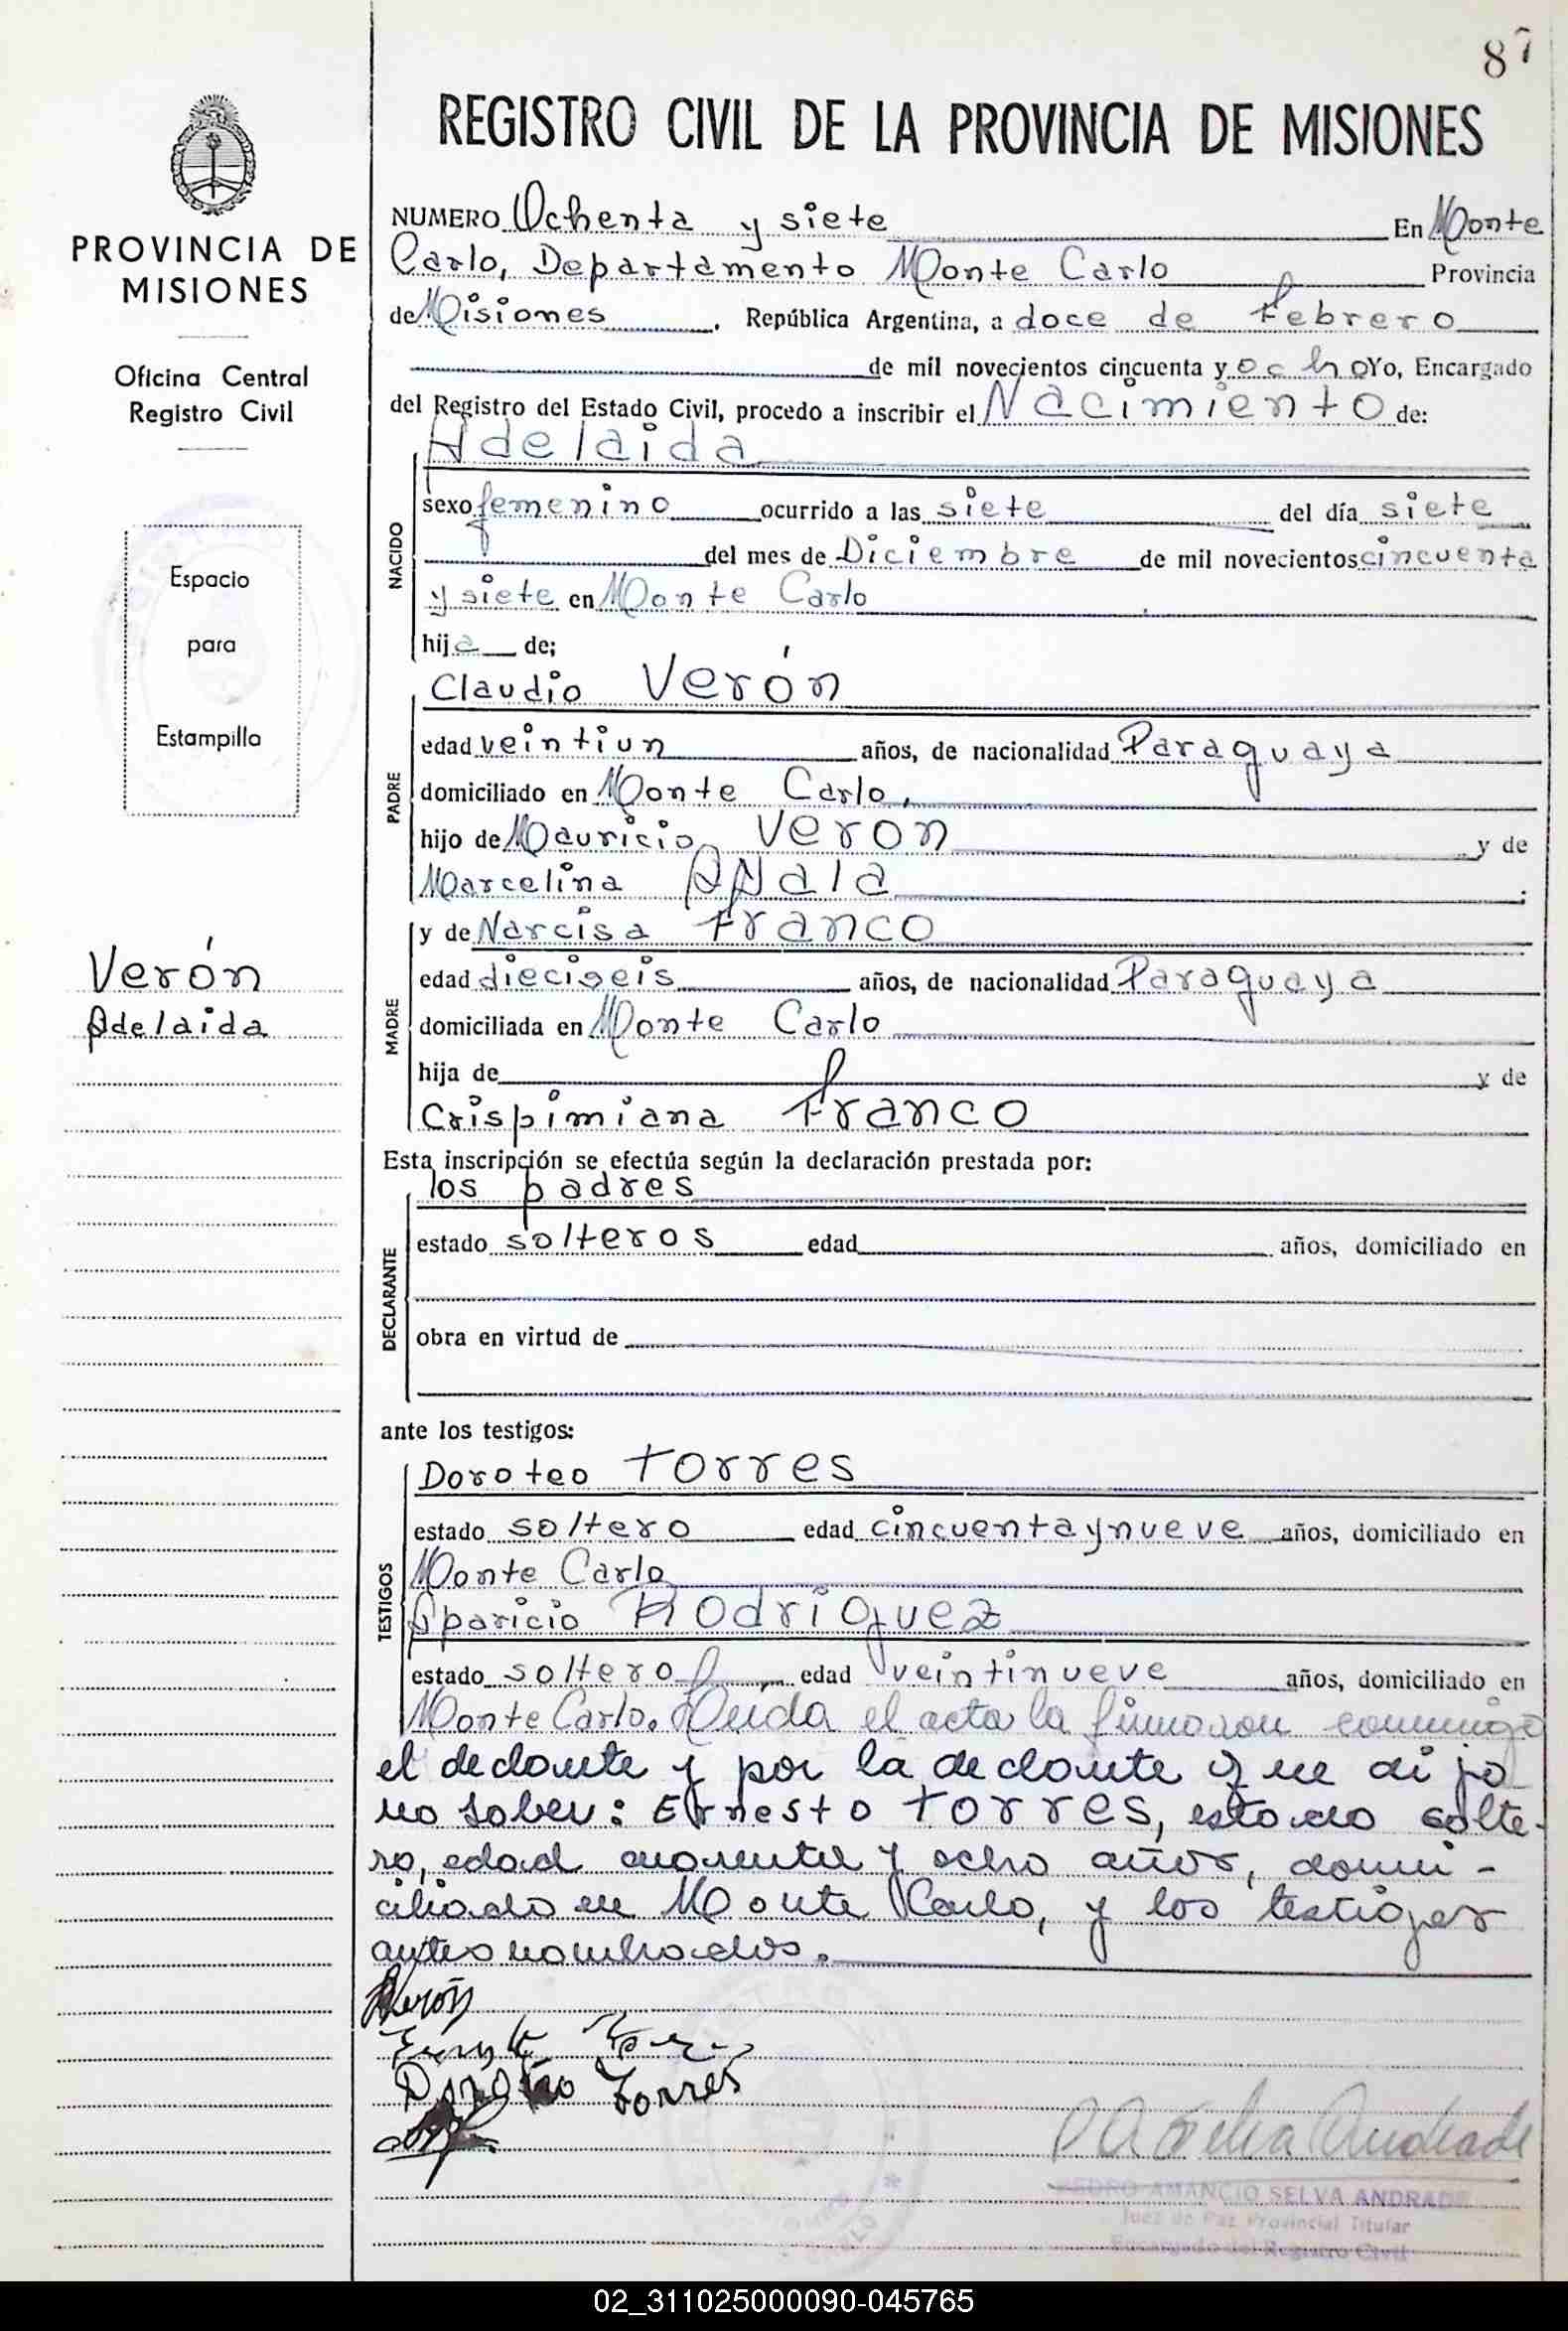 87
REGISTRO CIVIL DE LA PROVINCIA DE MISIONES
PROVINCIA DE
MISIONES
Oficina Central
Registro Civil
Espacio
para
Estampilla
Verón
Adelaida
NUMERO Ochenta y siete En Monte
Carlo, Departamento Monte Carlo Provincia
de Misiones, República Argentina, a doce de Febrero
de mil novecientos cincuenta y ocho Yo, Encargado
del Registro del Estado Civil, procedo a inscribir el Nacimiento de:
NACIDO
Adelaida
sexo femenino ocurrido a las siete del día siete
del mes de Diciembre de mil novecientos cincuenta
y siete en Monte Carlo
hija de;
PADRE
Claudio Verón
edad veintiun años, de nacionalidad Paraguaya
domiciliado en Monte Carlo,
hijo de Mauricio Verón y de
Marcelina AYala
MADRE
y de Narcisa Franco
edad dieciseis años, de nacionalidad Paraguaya
domiciliada en Monte Carlo
hija de y de
Crispimiana Franco
Esta inscripción se efectúa según la declaración prestada por:
DECLARANTE
los padres
estado solteros edad años, domiciliado en
obra en virtud de
ante los testigos:
TESTIGOS
Doroteo Torres
estado soltero edad cincuenta y nueve años, domiciliado en
Monte Carlo
Aparicio Rodriguez
estado soltero edad veintinueve años, domiciliado en
Monte Carlo. Leída el acta la firmaron conmigo
el declante y por la declante que dijo
no saber: Ernesto Torres, estado solte-
ro, edad cuarenta y ocho años, domi-
ciliado en Monte Carlo, y los testigos
antes nombrados.
Verón
Doroteo Torres
P A Selva Andrade
PEDRO AMANCIO SELVA ANDRADE
Juez de Paz Provincial Titular
Encargado del Registro Civil
02_311025000090-045765